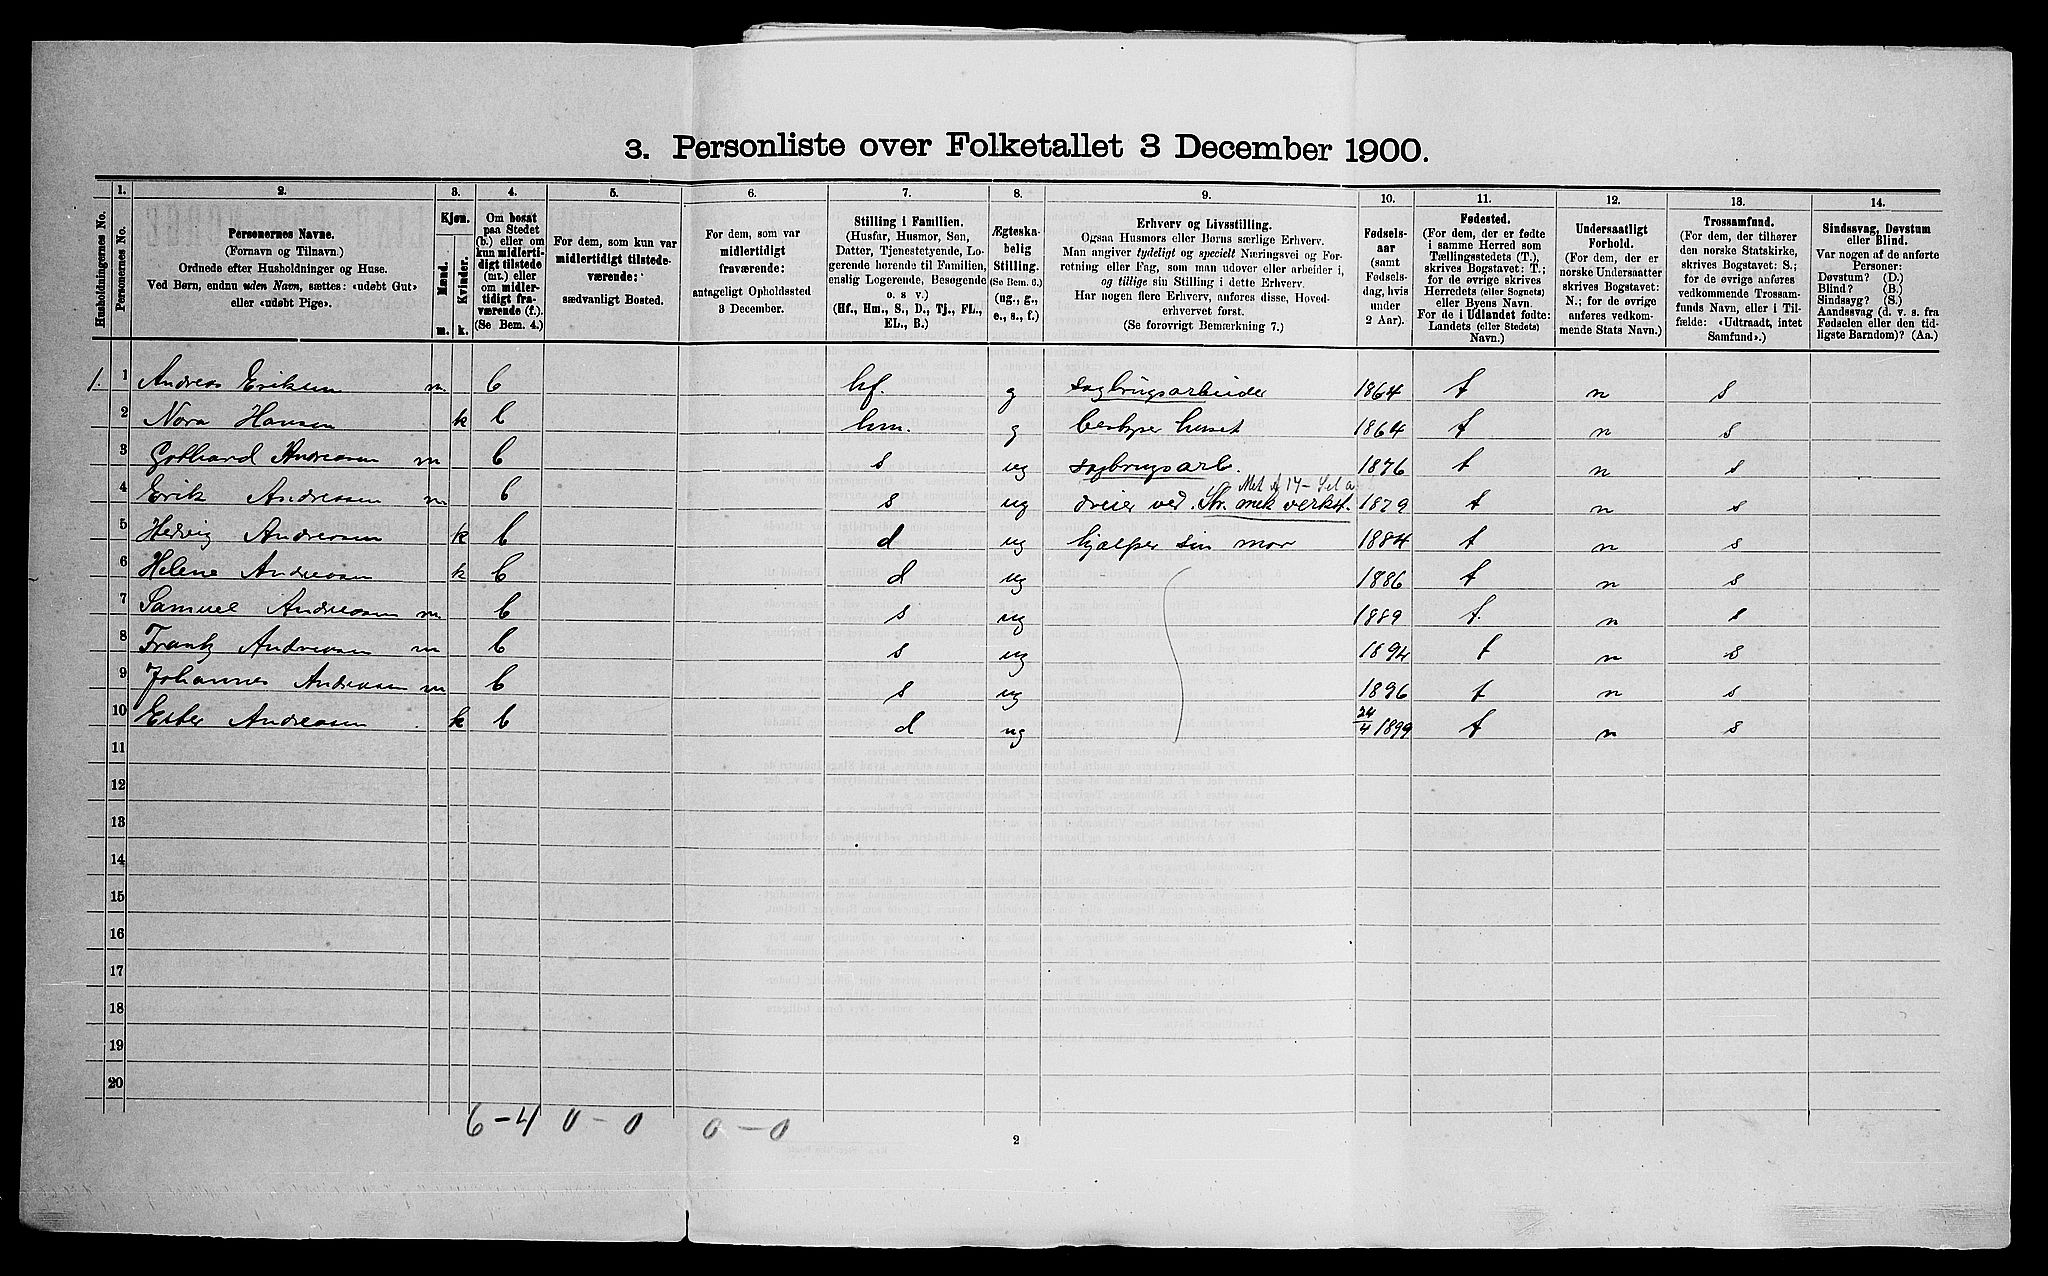 3. Personliste over Folketallet 3 December 1900.
1. 2. 3. 4. 5. 6. 7. 8. 9. 10. 11. 12. 13. 14.
Husholdningernes No.
Personernes No.
Personernes Navne.
(Fornavn og Tilnavn.)
Ordnede efter Husholdninger og Huse.
Ved Børn, endnu uden Navn, sættes: «udøbt Gut»
eller «udøbt Pige».
Kjøn.
Mænd.
Kvinder.
m. k.
Om bosat
paa Stedet
(b.) eller om
kun midlerti-
digt tilstede
(mt.) eller
om midler-
tidigt fra-
værende (f.).
(Se Bem. 4.)
For dem, som kun var
midlertidigt tilstede-
værende:
sædvanligt Bosted.
For dem, som var
midlertidigt
fraværende:
antageligt Opholdssted
3 December.
Stilling i Familien.
(Husfar, Husmor, Søn,
Datter, Tjenestetyende, Lo-
gerende hørende til Familien,
enslig Logerende, Besøgende
o. s v.)
(Hf., Hm., S., D., Tj., FL.,
EL., B.)
Ægteska-
belig
Stilling.
(Se Bem. 6.)
(ug., g.,
e., s., f.)
Erhverv og Livsstilling.
Ogsaa Husmors eller Børns særlige Erhverv.
Man angiver tydeligt og specielt Næringsvei og For-
retning eller Fag, som man udøver eller arbeider i,
og tillige sin Stilling i dette Erhverv.
Har nogen flere Erhverv, anføres disse, Hoved-
erhvervet først.
(Se forøvrigt Bemærkning 7.)
Fødsels-
aar
(samt
Fødsels-
dag, hvis
under
2 Aar).
Fødested.
(For dem, der er fødte
i samme Herred som
Tællingsstedets (T.),
skrives Bogstavet: T.;
for de øvrige skrives
Herredets (eller Sognets)
eller Byens Navn.
For de i Udlandet fødte:
Landets (eller Stedets)
Navn.)
Undersaatligt
Forhold.
(For dem, der er
norske Undersaatter
skrives Bogstavet:
N.; for de øvrige
anføres vedkom-
mende Stats Navn.)
Trossamfund.
(For dem, der tilhører
den norske Statskirke,
skrives Bogstavet: S.;
for de øvrige anføres
vedkommende Trossam-
funds Navn, eller i Til-
fælde: «Udtraadt, intet
Samfund».)
Sindssvag, Døvstum
eller Blind.
Var nogen af de anførte
Personer:
Døvstum? (D.)
Blind? (B.)
Sindssyg? (S.)
Aandssvag (d. v. s. fra
Fødselen eller den tid-
ligste Barndom)? (Aa.)
1. 1 Andreas Eriksen m. b hf. g sagbrugsarbeider 1864 t n s
2 Nora Hansen k b hm. g bestyrer huset 1864 t n s
3 Gothard Andreasen m b s ug sagbrugsarb. 1876 t n s
4 Erik Andreasen m b s ug dreier ved Str. mek verkst. 1879 t n s
5 Hedvig Andreasen k b d ug hjælper sin mor 1884 t n s
6 Helene Andreasen k b d ug 1886 t n s
7 Samuel Andreasen m. b s ug 1889 t. n s
8 Frantz Andreasen m b s ug 1894 t n s
9 Johannes Andreasen m b s ug 1896 t n s
10 Ester Andreasen k b d ug 24/4 1899 t n s
11
12
13
14
15
16
17
18
19
20
6-4 0-0 0-0
2